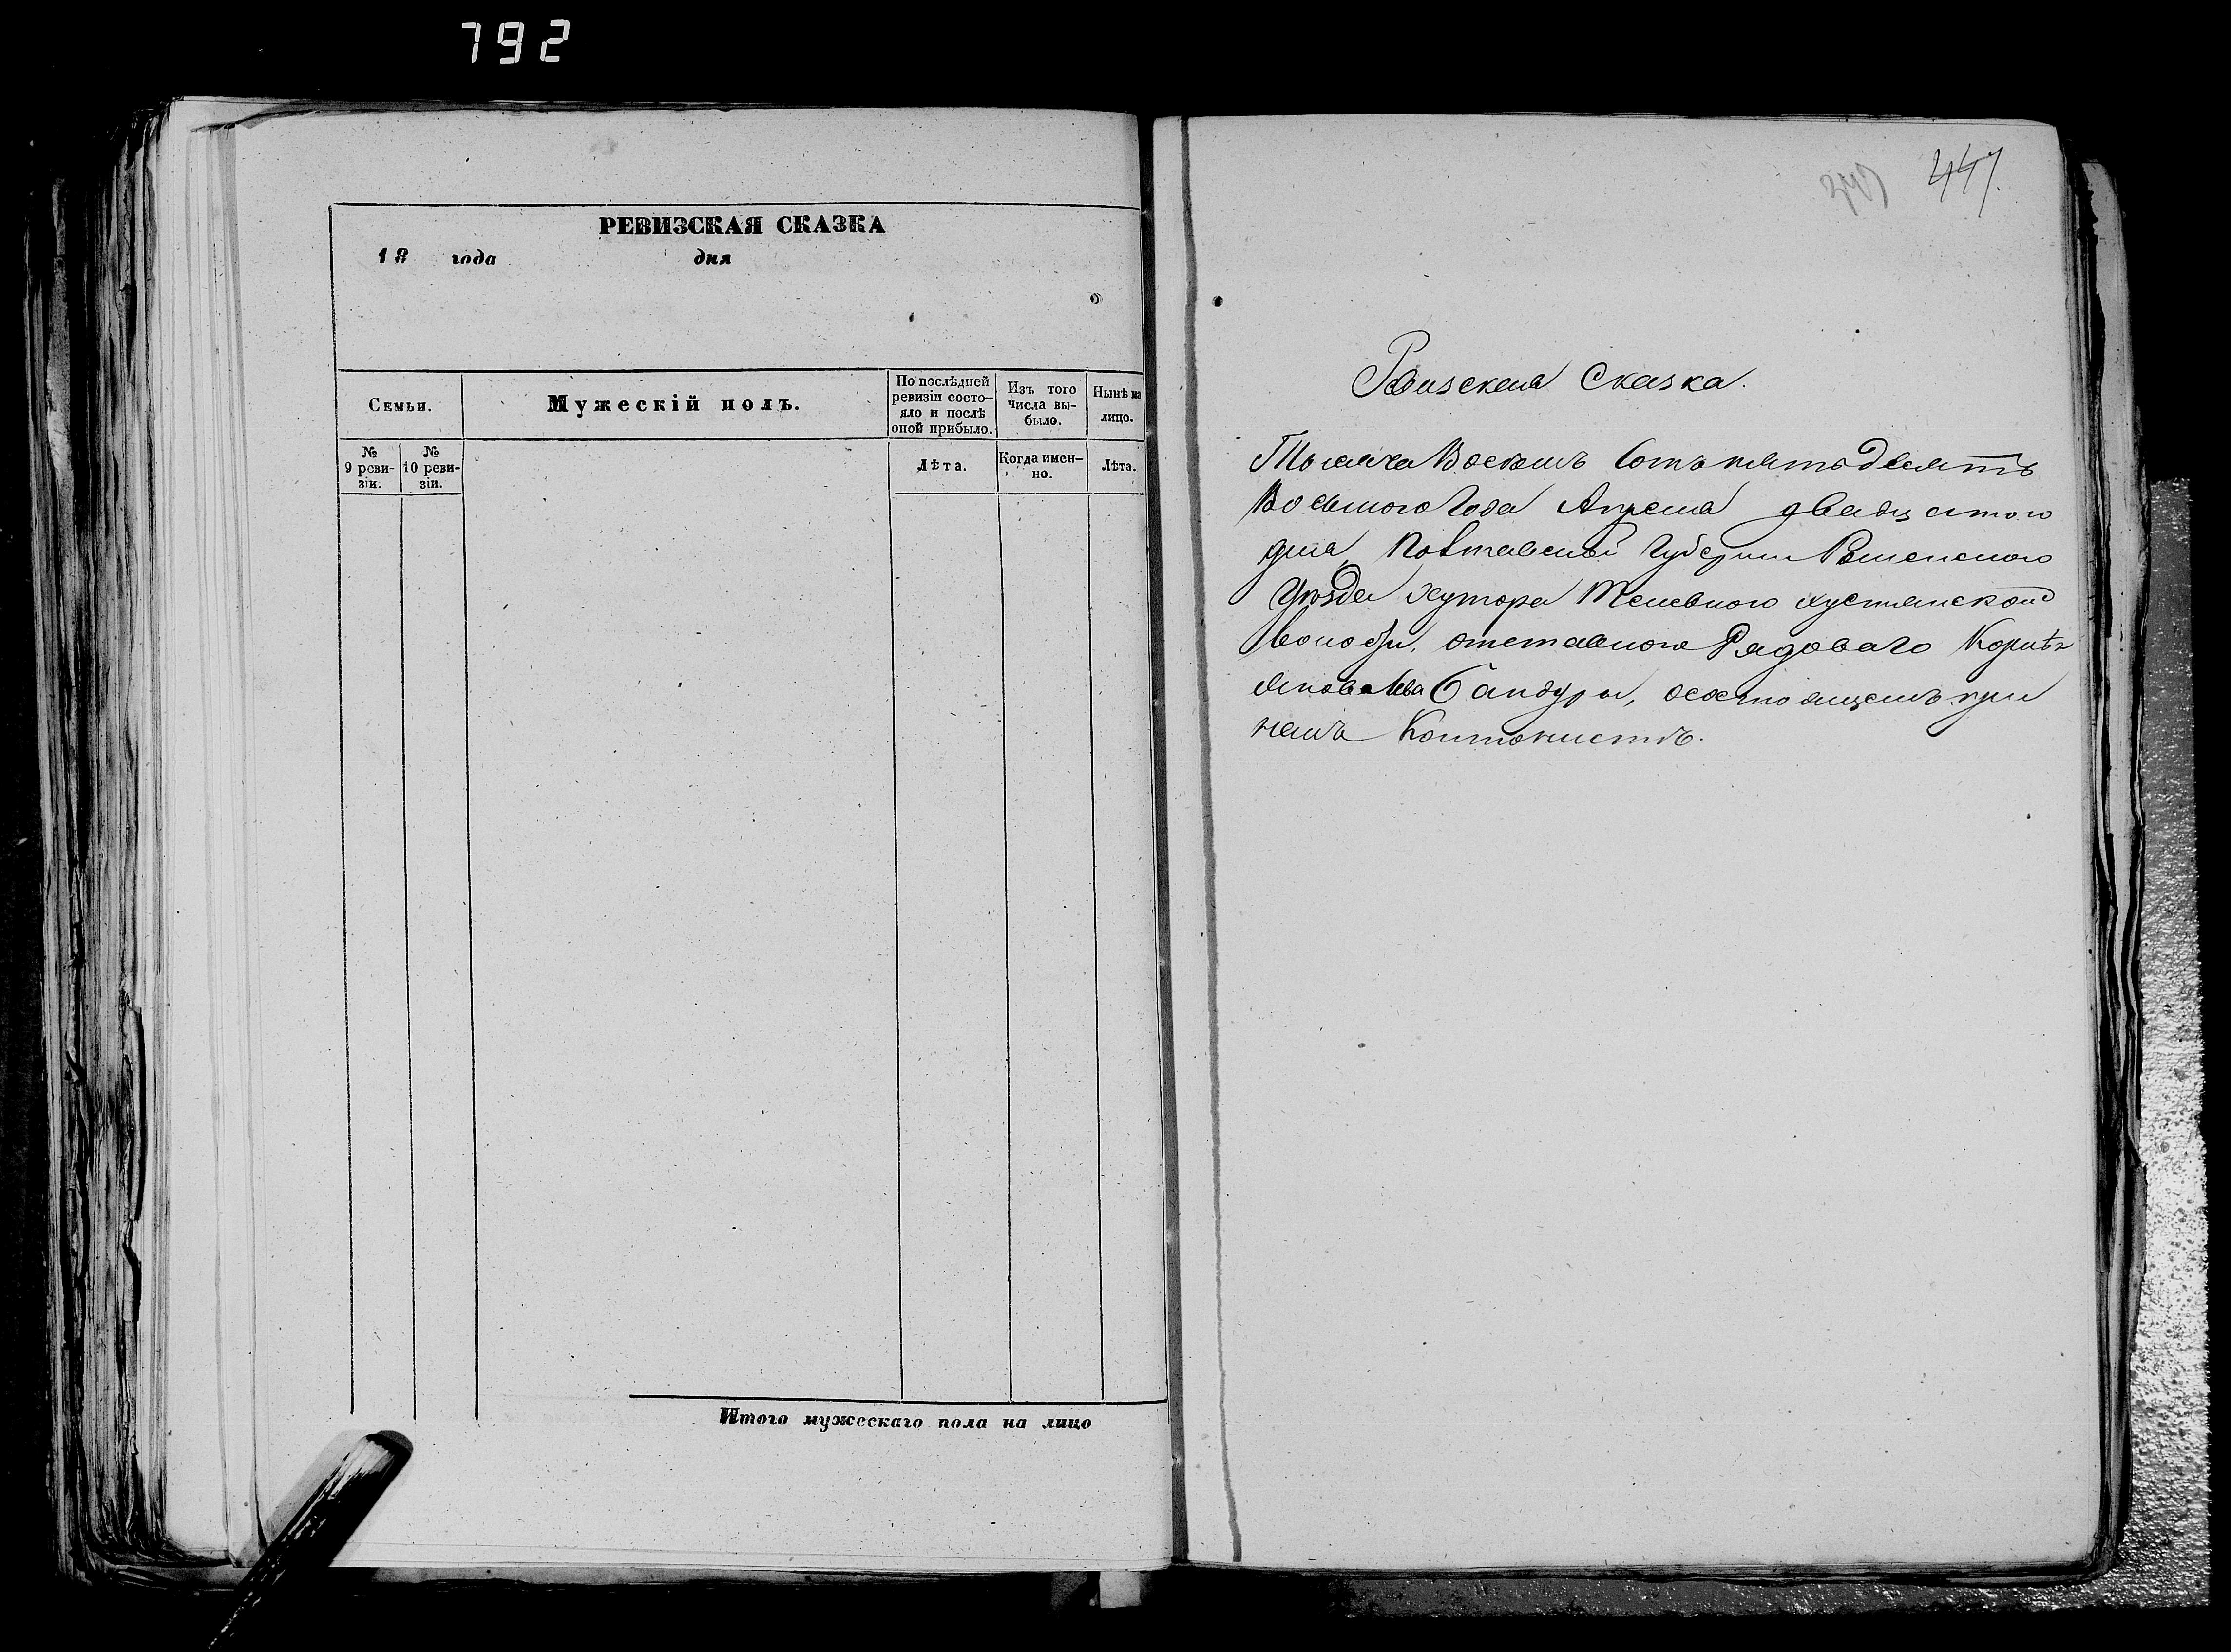 792
РЕВИЗСКАЯ СКАЗКА
18 года дня
Семьи.
Мужескій полъ.
По послѣдней ревизіи состо-
яло и послѣ
оной прибыло.
Изъ того
числа вы-
было.
Нынѣ на
лицо.
№
9 реви-
зіи.
№
10 реви-
зіи.
Лѣта.
Когда имен-
но.
Лѣта.
Итого мужескаго пола на лицо
447.
Ревизская Сказка.
Тысяча Восемь Сотъ пятьдесятъ
Восьмого Года Апреля двадцатого
дня, Полтавской Губернии Роменского
Уѣзда хутора хустянской
волости, отставного Рядоваго Корнѣя
Яковлева Бандуры, о состоящемъ при
немъ Кантонистѣ.